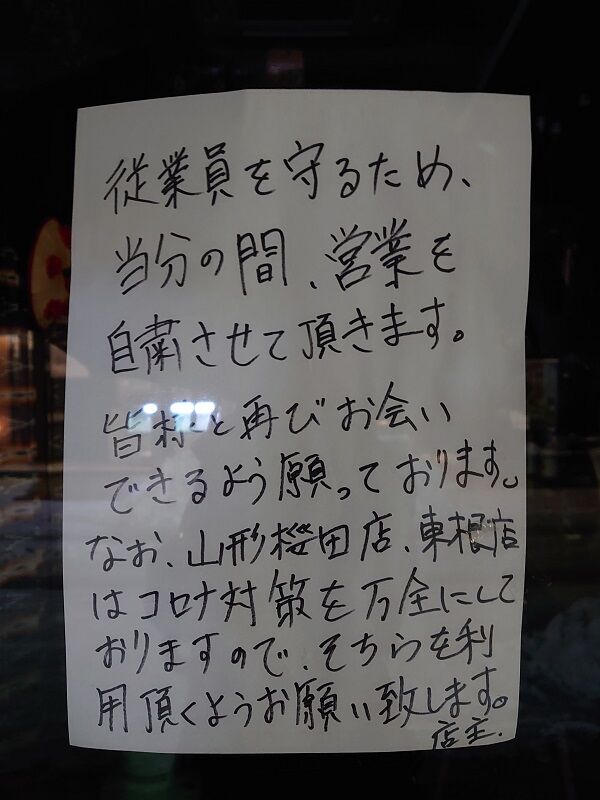 従業員を守るため、
当分の間、営業を
自粛させて頂きます。
皆様と再びお会い
できるよう願っております。
なお、山形桜田店、東根店
はコロナ対策を万全にして
おりますので、そちらを利
用頂くようお願い致します。
店主.